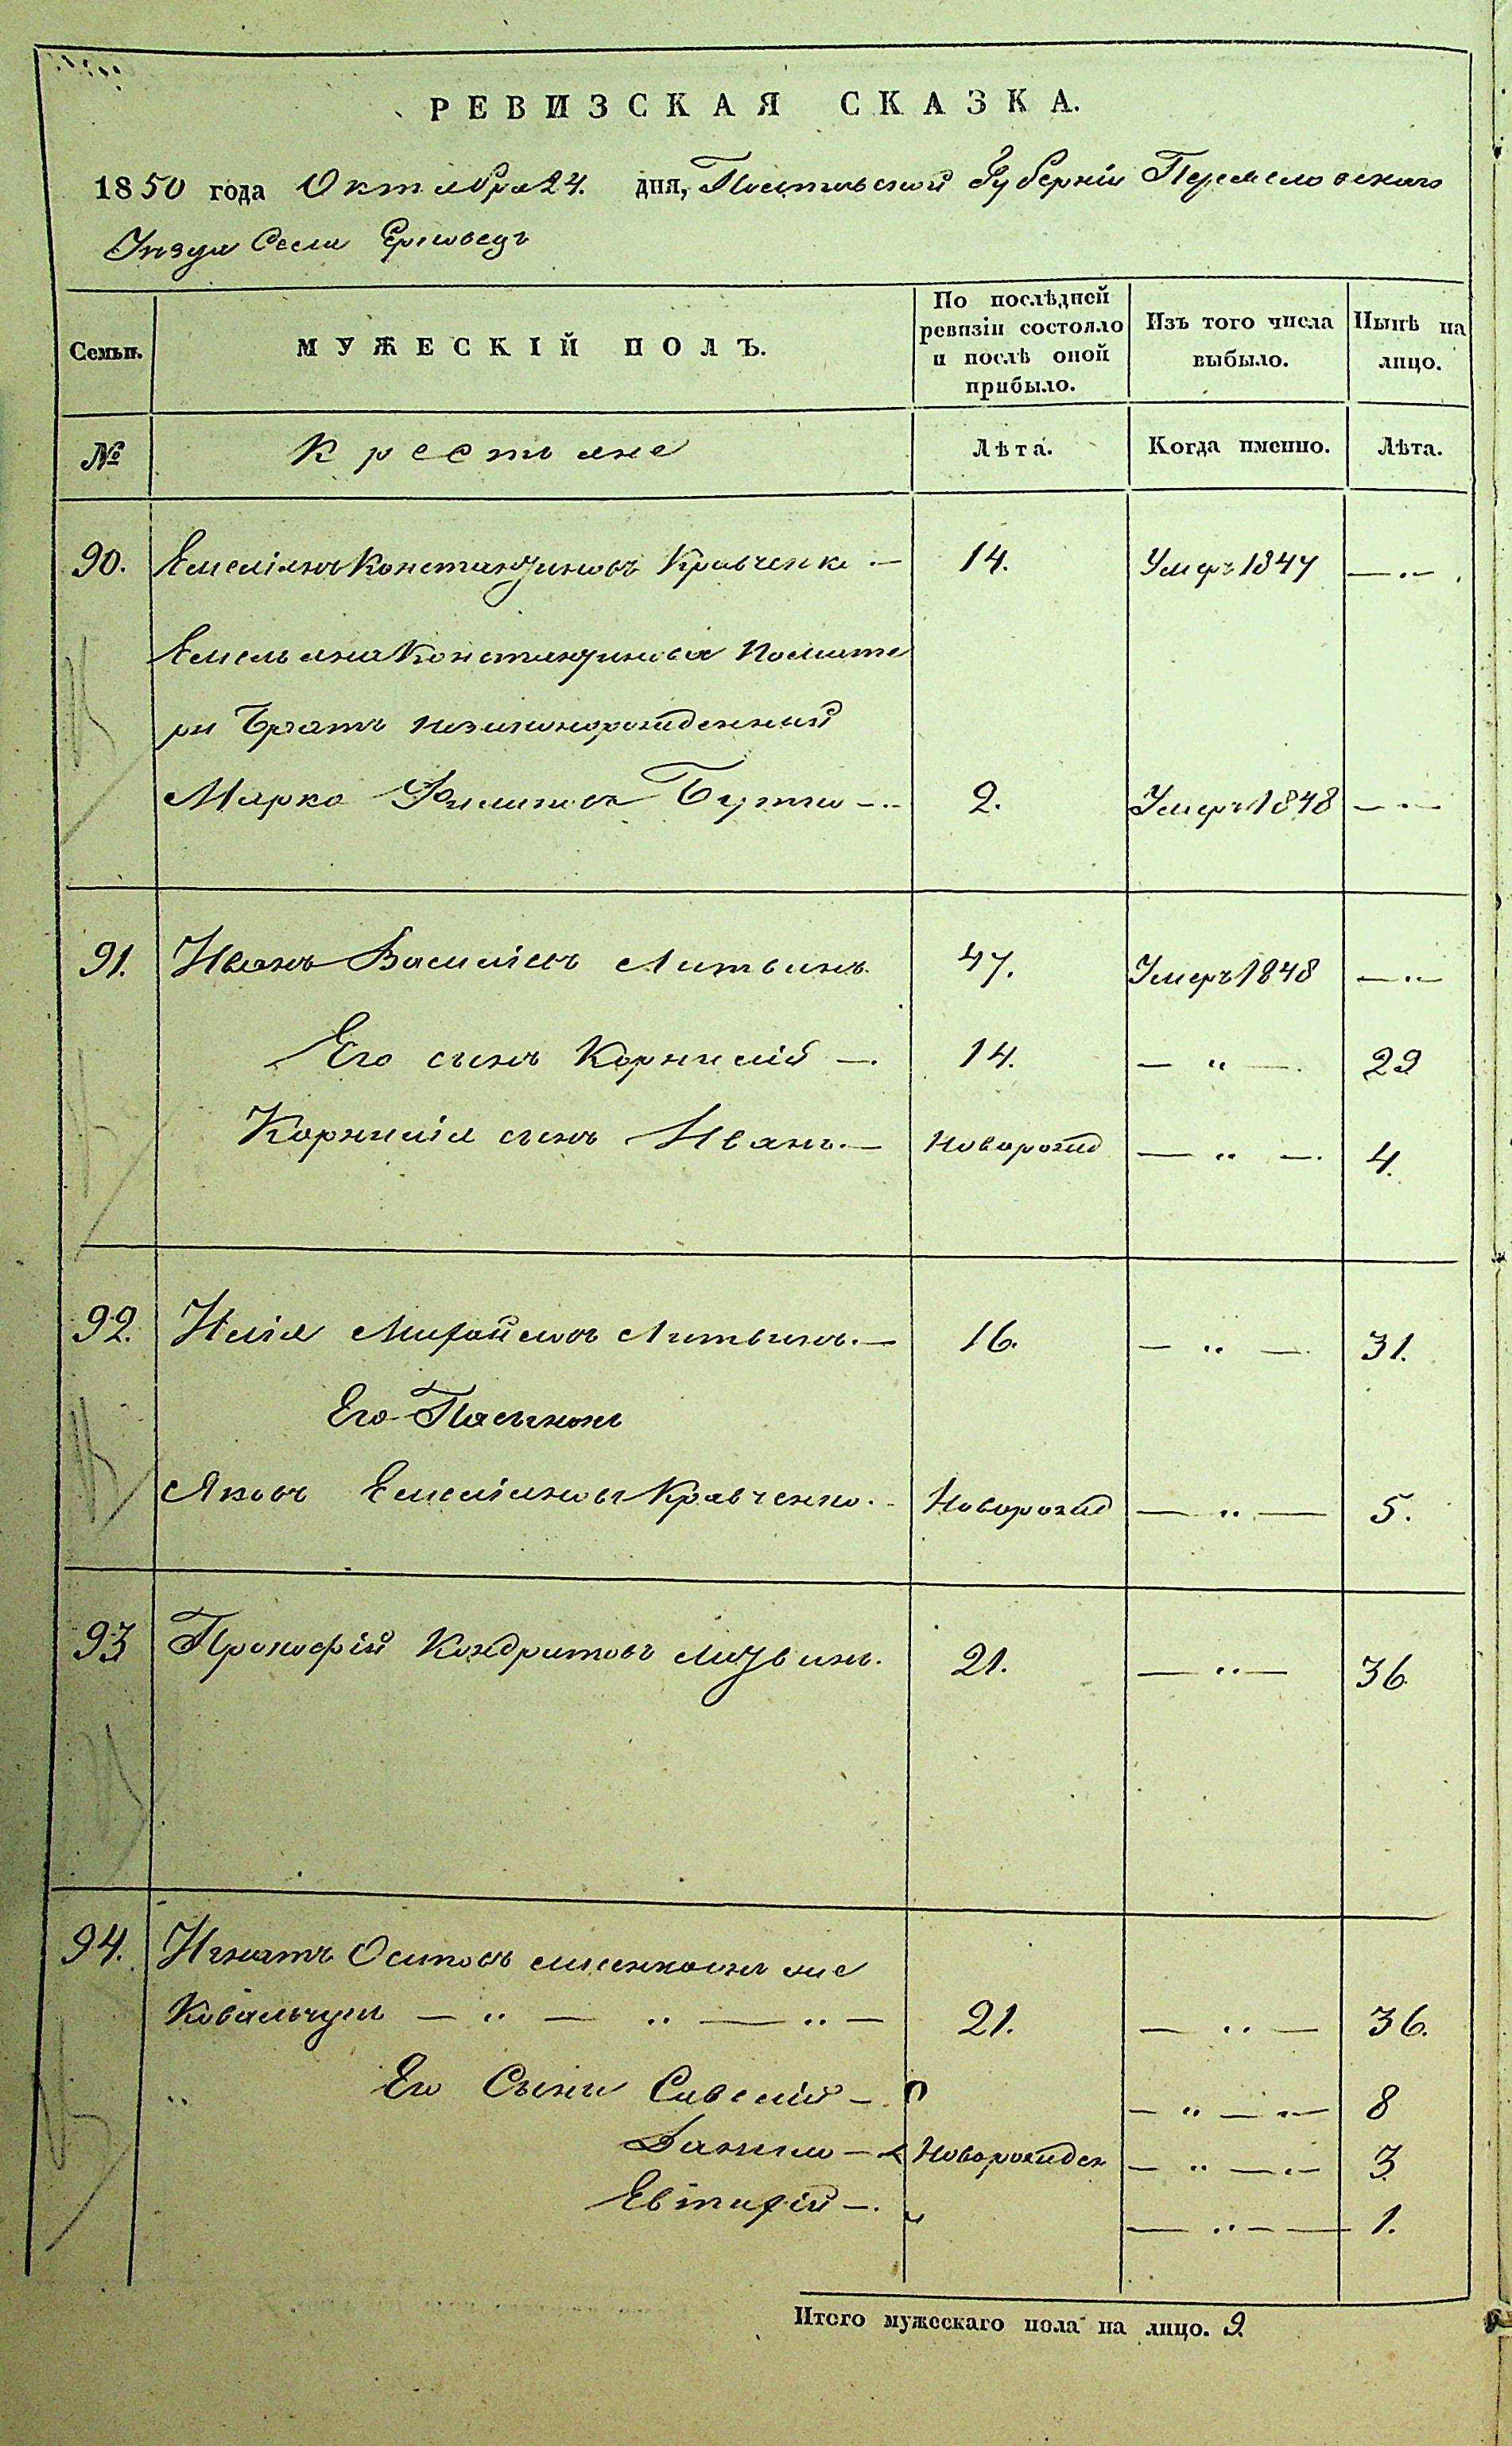 РЕВИЗСКАЯ СКАЗКА.
1850 года Октября 24. дня, Полтавской Губерніи Переяславскаго
Уѣзда Села Ерковецъ
Семьи.
МУЖЕСКІЙ ПОЛЪ.
По послѣдней ревизіи состояло и послѣ оной прибыло.
Изъ того числа выбыло.
Нынѣ на лицо.
№ Крестьяне Лѣта. Когда именно. Лѣта.
90. Емеліянъ Константиновъ Кравченко .— 14. Умеръ 1847 — .. —
Емельяна Константинова помате
ри братъ незаконорожденный
Марко Филиповъ Бутко — .. 2. Умеръ 1848 — .. —
91. Иванъ Василіевъ Литвинъ. 47. Умеръ 1848 — .. —
Его сынъ Корнилій —. 14. — „ —. 29
Корнилія сынъ Иванъ. — Новорожд — „ —. 4.
92. Илія Михайловъ Литвинъ. — 16. — „ —. 31.
Его Пасынокъ
Яковъ Емеліяновъ Кравченко. Новорожд — „ — 5.
93 Прокофій Кондратовъ Литвинъ. 21. — „ — 36.
94. Игнатъ Осиповъ онже
Ковальчукъ — „ — „ — „ — 21. — „ — 36.
„ Его Сыни Савелій —. — „ — „ — 8
Данило — Новорожден — „ — „ — 3
Евтихій —. — „ — — 1.
Итого мужескаго пола на лицо. 9.